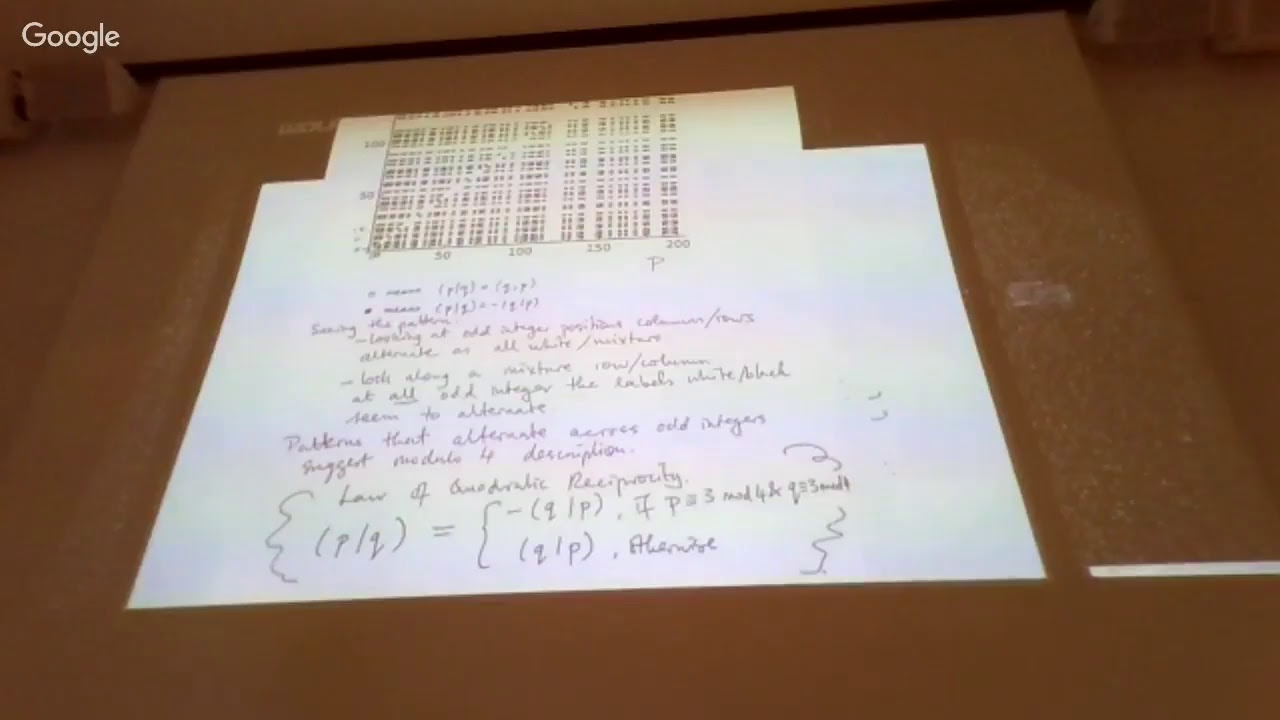 Google
100
50
0
50
100
150
200
P
▫ means (p|q) = (q,p)
▪ means (p|q) = -(q|p)
Seeing the pattern:
- Looking at odd integer positions columns/rows
alternate as all white/mixture
- look along a mixture row/column
at all odd integer the labels white/black
seem to alternate
Patterns that alternate across odd integers
suggest modulo 4 description.
Law of Quadratic Reciprocity.
(p|q) = { -(q|p), if P ≡ 3 mod 4 & q ≡ 3 mod 4
(q|p), otherwise